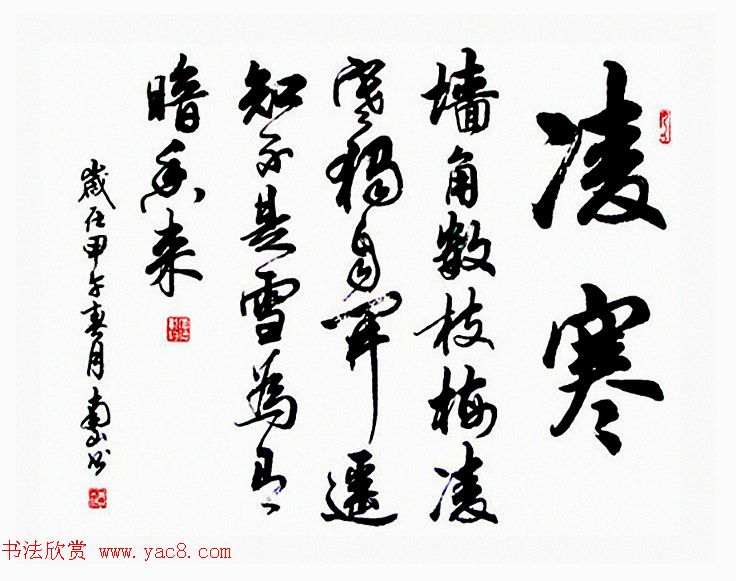 凌寒
墙角数枝梅凌
寒獨自開遥
知不是雪為有
暗香来
歲在甲午春月南山书
书法欣赏 www.yac8.com